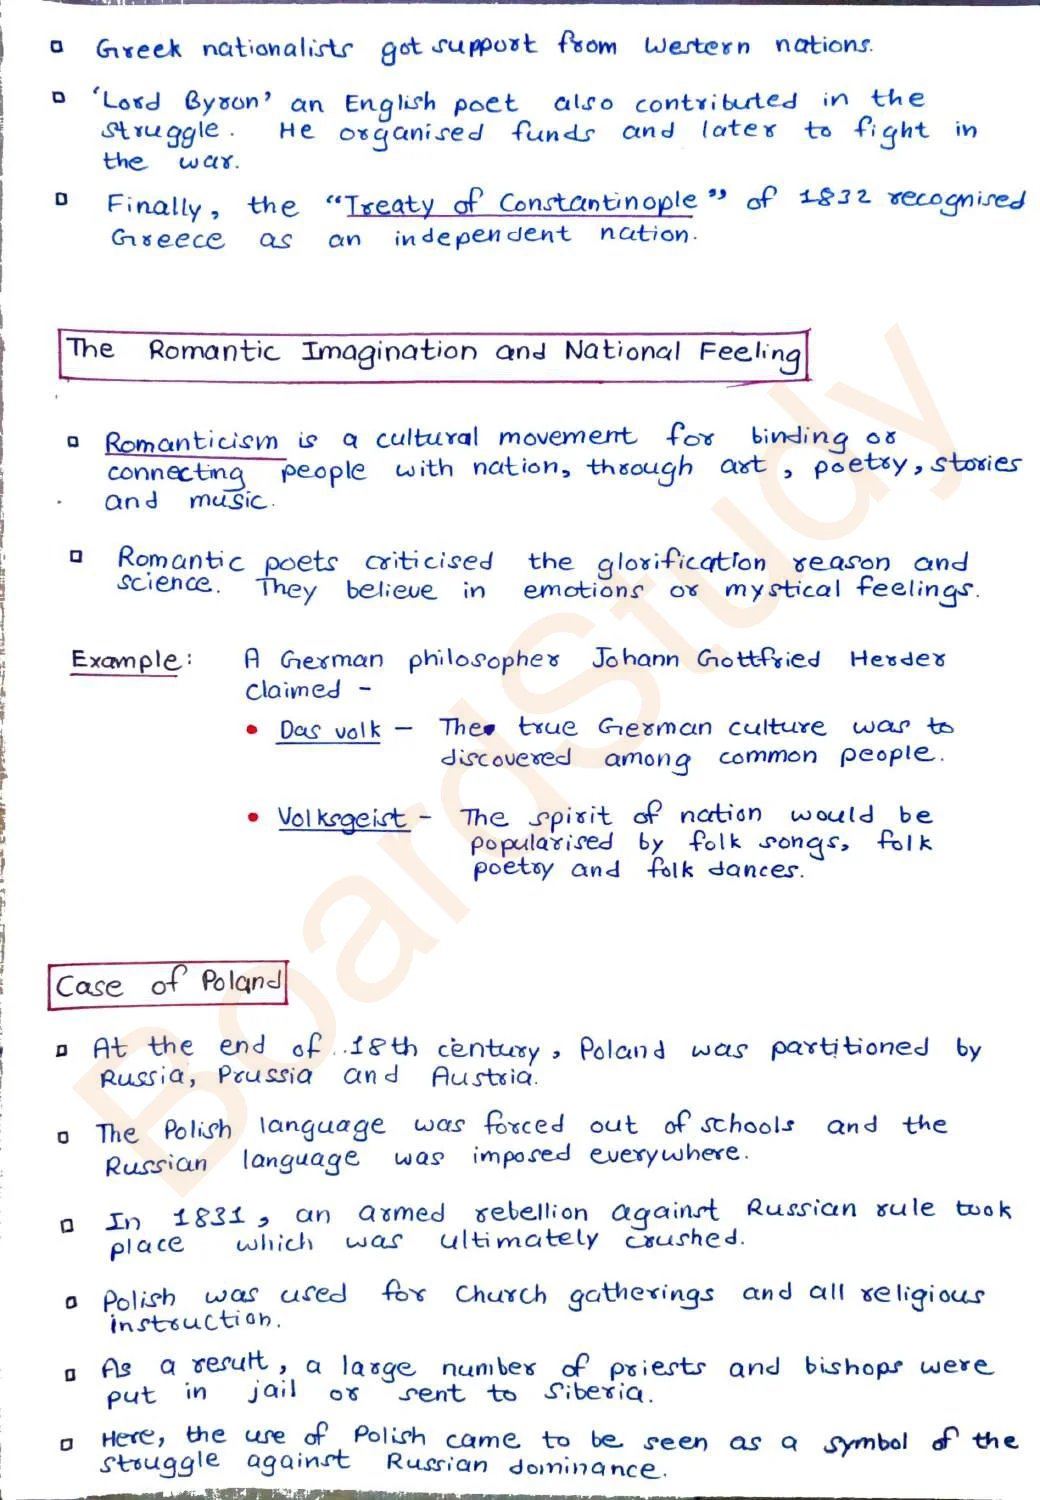 Greek nationalists got support from Western nations.
'Lord Byron' an English poet also contributed in the
struggle. He organised funds and later to fight in
the war.
Finally, the "Treaty of Constantinople" of 1832 recognised
Greece as an independent nation.
The Romantic Imagination and National Feeling
Romanticism is a cultural movement for binding or
connecting people with nation, through art, poetry, stories
and music.
Romantic poets criticised the glorification reason and
science. They believe in emotions or mystical feelings.
Example: A German philosopher Johann Gottfried Herder
claimed -
• Das volk - The true German culture was to
discovered among common people.
• Volksgeist - The spirit of nation would be
popularised by folk songs, folk
poetry and folk dances.
Case of Poland
At the end of 18th century, Poland was partitioned by
Russia, Prussia and Austria.
The Polish language was forced out of schools and the
Russian language was imposed everywhere.
In 1831, an armed rebellion against Russian rule took
place which was ultimately crushed.
Polish was used for Church gatherings and all religious
instruction.
As a result, a large number of priests and bishops were
put in jail or sent to Siberia.
Here, the use of Polish came to be seen as a symbol of the
struggle against Russian dominance.
BoardStudy